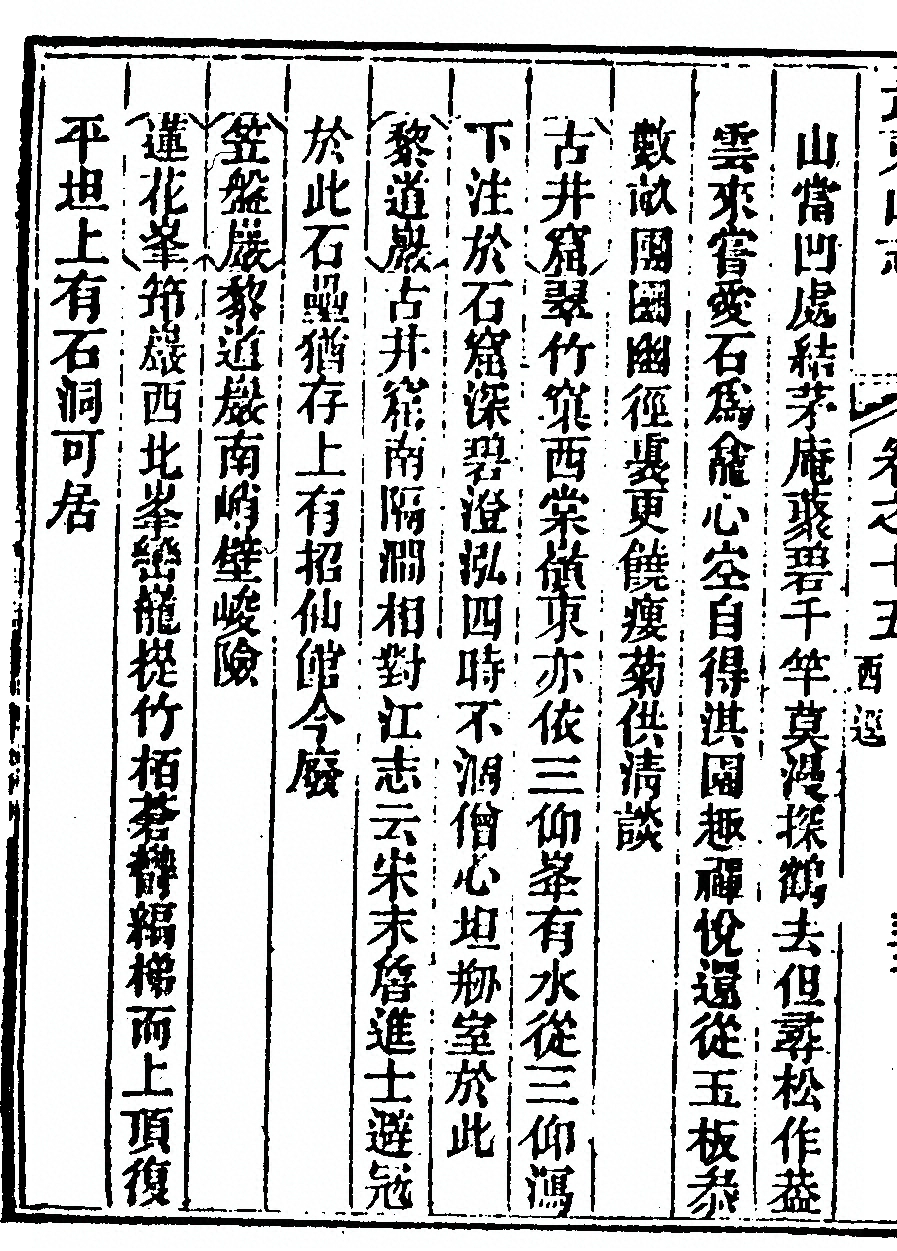 卷之十五 西 逕
山當凹處結茅庵聚碧千竿莫漫探鶴去但尋松作葢
雲來嘗愛石爲龕心空自得淇園趣禪悅還從玉板叅
數畝團團幽徑裏更饒瘦菊供清談
古井窟翠竹窠西棠嶺東亦依三仰峯有水從三仰瀉
下注於石窟深碧澄泓四時不涸僧心坦刱室於此
黎道巖古井窟南隔澗相對江志云宋末詹進士避冦
於此石壘猶存上有招仙館今廢
笠盤巖黎道巖南峭壁峻險
蓮花峯筇巖西北峯巒巃嵷竹栢蒼鬱緼梯而上頂復
平坦上有石洞可居